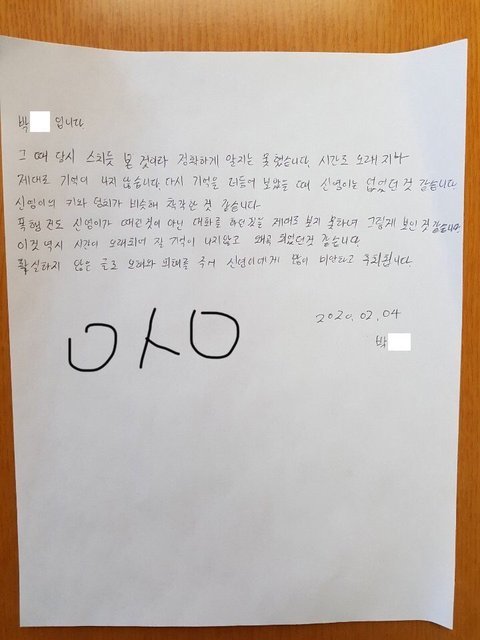 박 입니다
그 때 당시 스치듯 본 것이라 정확하게 알지는 못 했습니다. 시간도 오래 지나
제대로 기억이 나지 않습니다. 다시 기억을 더듬어 보았을 때 신영이는 없었던 것 같습니다
신영이의 키와 덩치가 비슷해 착각한 것 같습니다.
폭행 건도 신영이가 때린것이 아닌 대화를 하던것을 제대로 보지 못하여 그렇게 보인 것 같습니다
이것 역시 시간이 오래되어 잘 기억이 나지않고 왜곡 되었던것 같습니다
확실하지 않은 글로 오해와 피해를 주어 신영이에게 많이 미안하고 후회됩니다.
2020.02.04
박